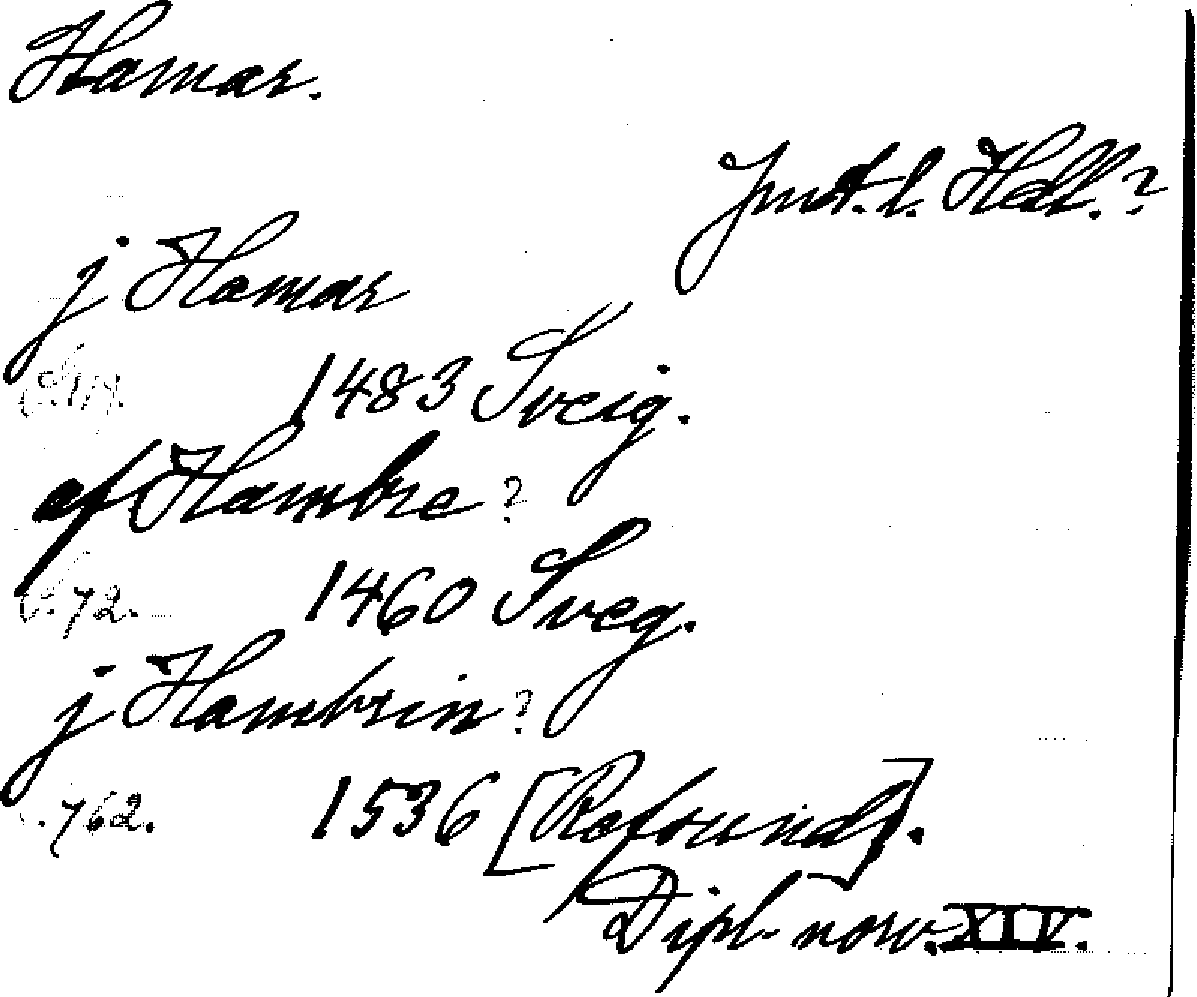 Hamar.
Jmt. l. Hdl.?
j Hamar
1483 Sveig.
af Hambre?
s. 72. 1460 Sveg.
j Hambrin?
s. 762. 1536 [Refsund].
Dipl. norv. XIV.